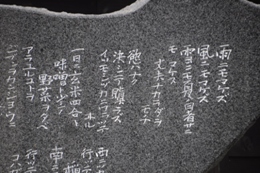 雨ニモマケズ
風ニモマケズ
雪ニモ夏ノ暑サニ
モマケヌ
丈夫ナカラダヲ
モチ
慾ハナク
決シテ瞋ラズ
イツモシヅカニワラッテ
ヰル
一日ニ玄米四合ト
味噌ト少シノ
野菜ヲタベ
アラユルコトヲ
行ッテ
南ニ
行ッテ